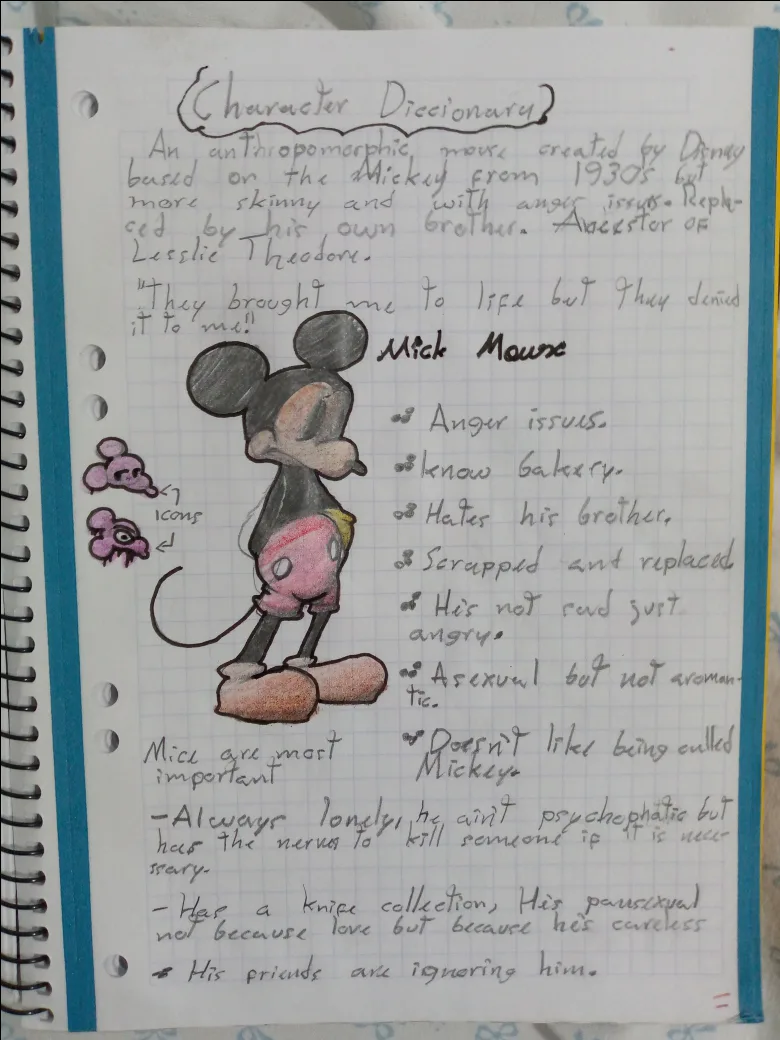 Character Diccionary
An anthropomorphic mouse created by Disney
based on the Mickey from 1930s but
more skinny and with anger issues. Repla-
ced by his own brother. Ancestor of
Lesslie Theodore.
"They brought me to life but they denied
it to me!"
Mick Mouse
Icons
Anger issues.
know bakery.
Hates his brother.
Scrapped and replaced
He's not sad just
angry.
Asexual but not aroman-
tic.
Doesn't like being called
Mickey.
Mice are most
important
-Always lonely, he ain't psychophatic but
has the nerves to kill someone if it is nece-
ssary.
- Has a knife collection, His pansexual
not because love but because he's careless
- His friends are ignoring him.